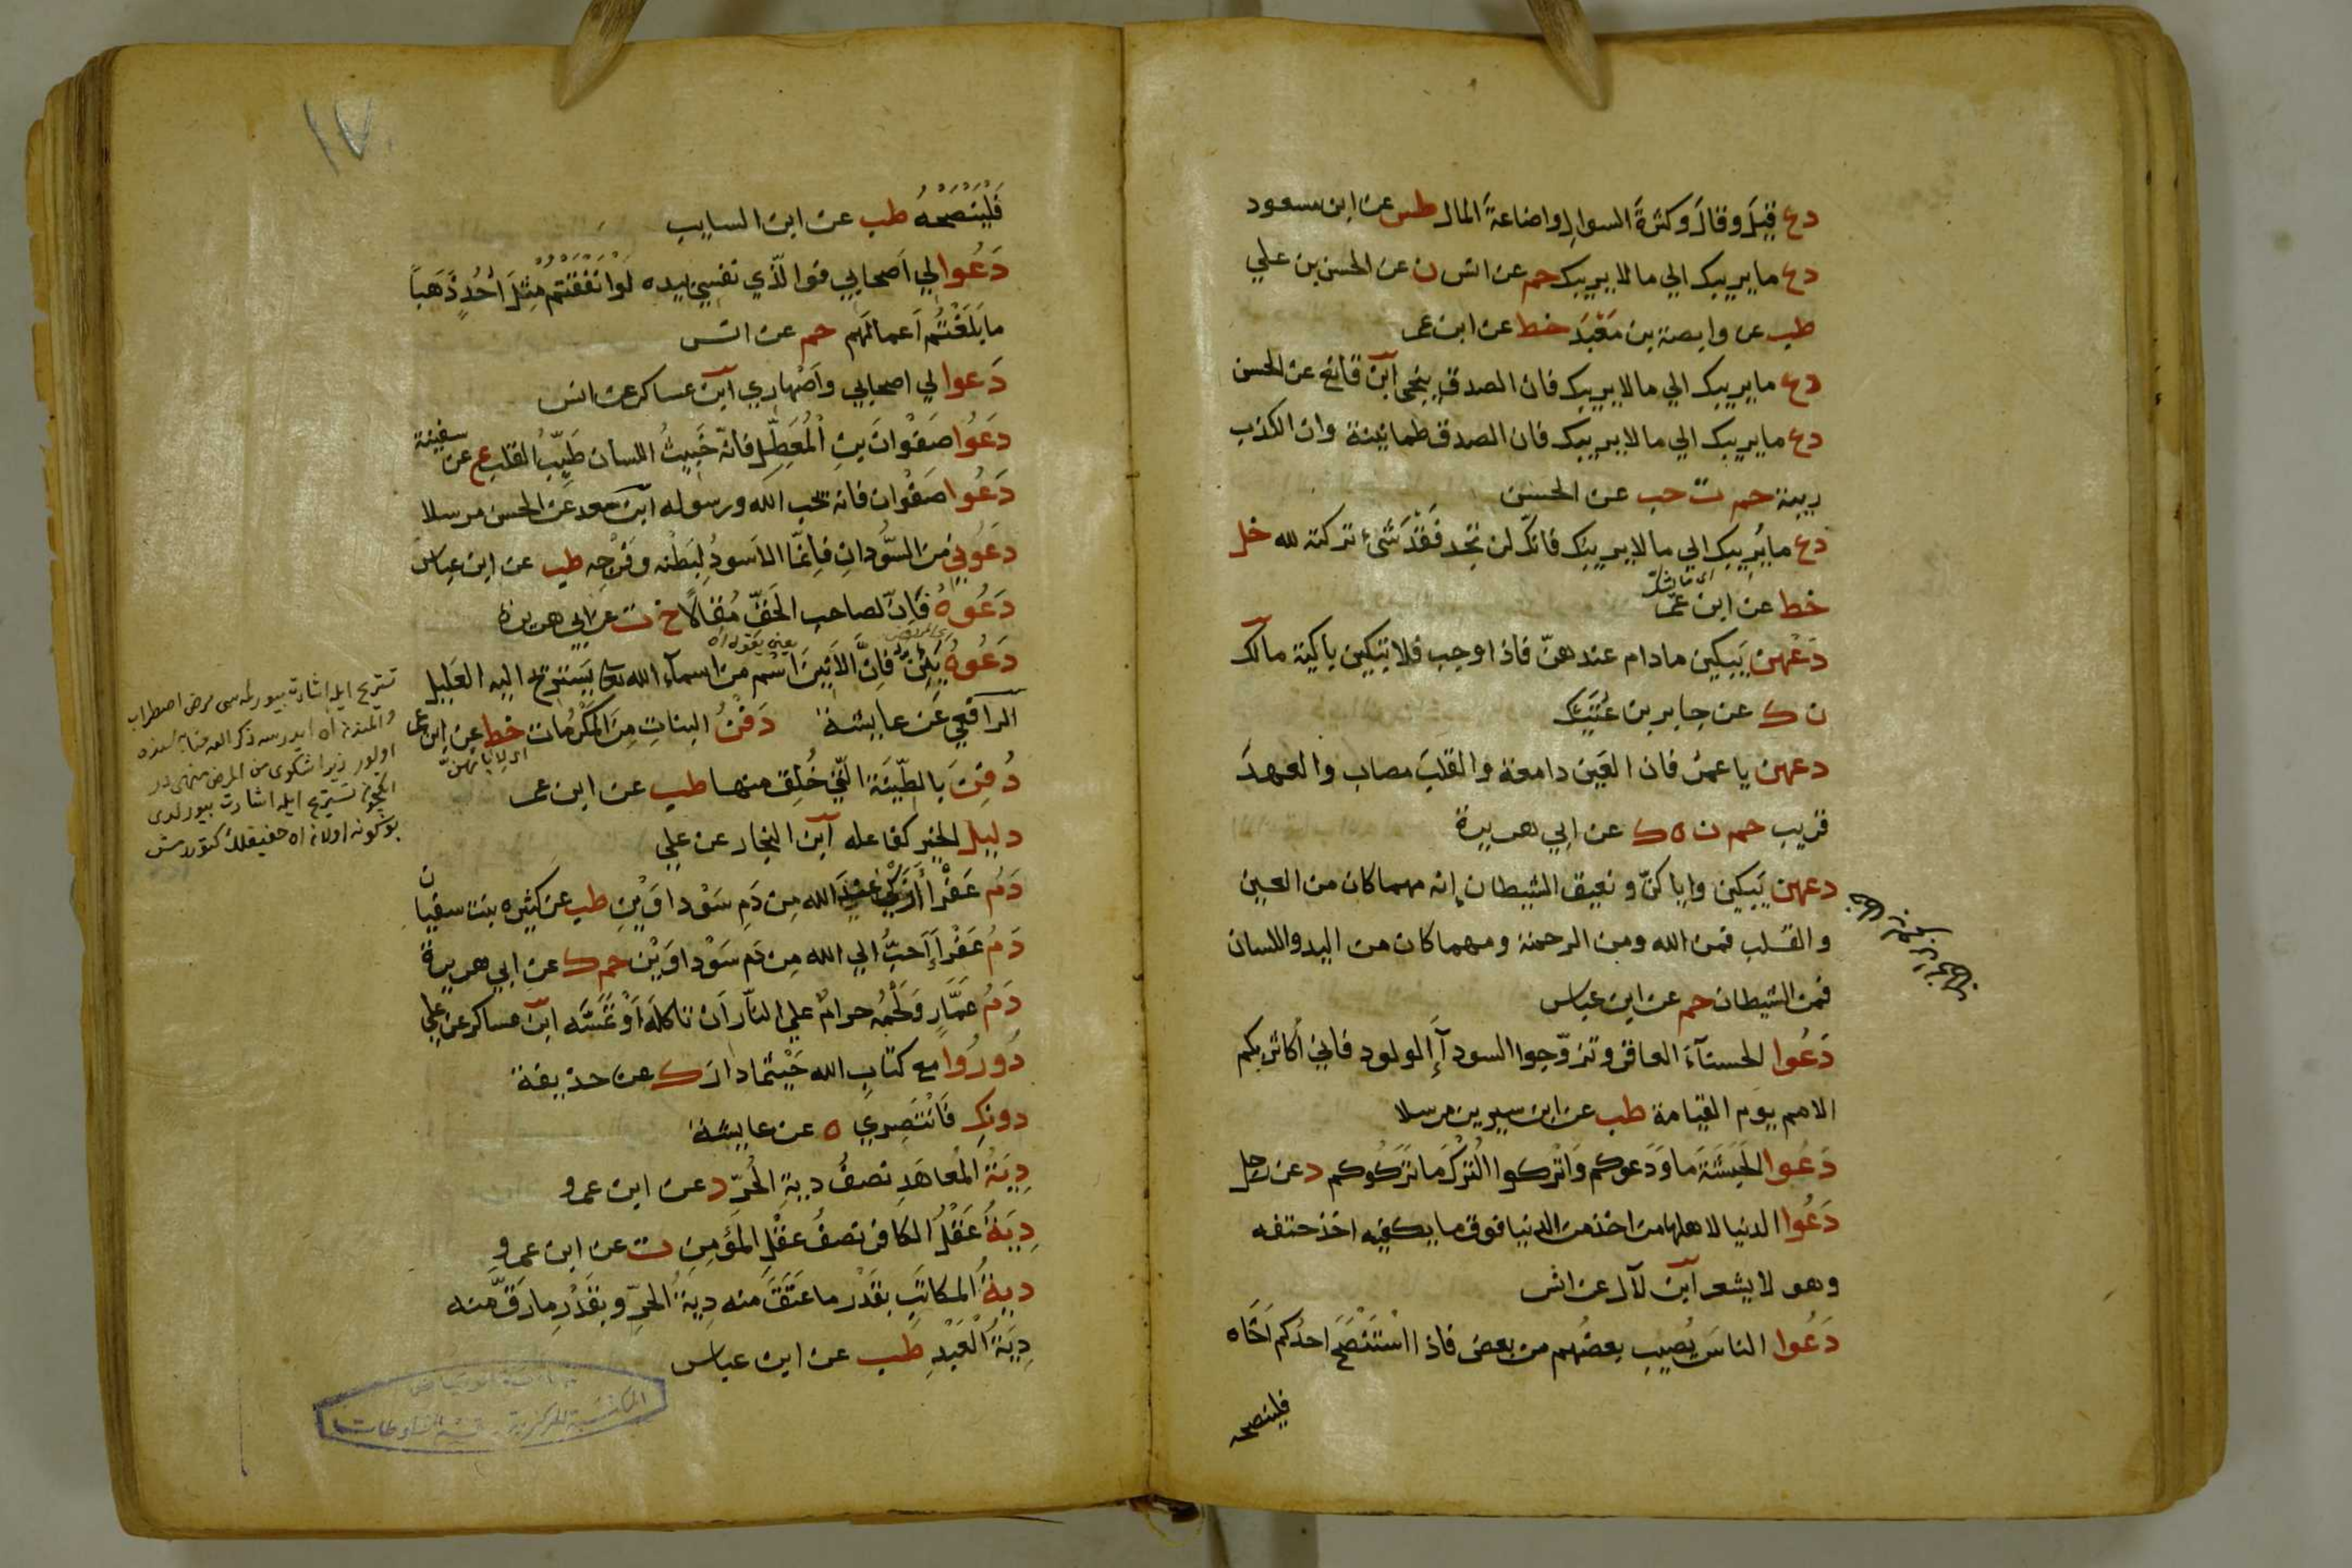 دع قيل وقال وكثرة السوال واضاعة المال طس عن ابن مسعود
دع ما يريبك الي ما لا يريبك حم عن انس ن عن الحسن بن علي
طب عن وابصة بن مَعْبَد خط عن ابن عمر
دع ما يريبك الي ما لا يريبك فان الصدق ينجى ابن قانع عن الحسن
دع ما يريبك الي ما لا يريبك فان الصدق طمانينة وان الكذب
ريبة حم ت حب عن الحسن
دع ما يُريبك الي ما لا يريبك فانّك لن تجد فَقْدَ شَىْءٍ تركته لله حل
خط عن ابن عمر
دَعْهن يَبكين مادام عندهنّ فاذا وجب فلا تبكين باكية مالك
ن ك عن جابر بن عَتيك
دعهن يا عمر فان العَين دامعة والقلبَ مصاب والعهدَ
قريب حم ن ه ك عن ابي هريرة
دعهن يَبكين واياكنّ ونعيق الشيطان إنه مهما كان من العين
والقلب فمن الله ومن الرحمة ومهما كان من اليد واللسان
فمن الشيطان حم عن ابن عباس
دَعُوا الحسنآءَ العاقر وتزوّجوا السودآءَ الولود فاني أكاثر بكم
الامم يوم القيامة طب عن ابن سيرين مرسلا
دَعُوا الحَبَشَةَ ما وَدَعوكم وَاتْركوا التُركَ ما تَرَكُوكم د عن رجل
دَعُوا الدنيا لاهلها من اخذ من الدنيا فوق ما يكفيه اخذ حتفه
وهو لا يشعر ابن لآل عن انس
دَعُوا الناسَ يُصيب بعضُهم من بعض فاذا اسْتَنْصَحَ احدُكم اَخَاه
فلينصحه
١٧
فَلْيَنْصَحْهُ طب عن ابن السايب
دَعُوا لي اَصحابي فوا لّذي نفسي بيده لَو اَنْفَقْتُم مِثْلَ اُحُدٍ ذَهَباً
ما بَلَغْتُم اَعمالَهم حم عن انس
دَعوا لي اصحابي واَصْهاري ابن عساكر عن انس
دَعُوا صَفْوانَ بنِ المُعَطِّلِ فانّه خَبِيثُ اللسان طَيِّبُ القلب ع عن سفينة
دَعُوا صَفْوان فانه يحب الله ورسوله ابن سعد عَن الحسن مرسلا
دَعُوني من السُّودانِ فاِنّما الاَسودُ لِبَطْنه وفَرْجِه طب عن ابن عباس
دَعُوهُ فَاِنّ لصاحب الحَقّ مَقالاً خ ت عن ابي هريرة
دَعُوهُ يَئِنّ فاِنَّ الاَنينَ اسْم من اسمآء الله تعالى يَستَريح اليه العَليل
الرافعي عَن عايشة دَفْنُ البناتِ مِنَ المَكْرُمَات خط عن ابن عمر
دُفِنَ بالطّينَةِ الّتي خُلِق منها طب عن ابن عمر
دليل الخير كفاعله ابن النجار عن علي
دَمُ عَفْرَاءَ اَزْكى عند الله مِن دَمِ سَوْداوَيْن طب عن كثيره بنت سفيان
دَمُ عَفْرَاءَ اَحَبُّ الي الله مِن دَم سَوْداوَيْن حم ك عن ابي هريرة
دَمُ عَمّارٍ وَلَحْمُه حرامٌ علي النّار اَن تاكلَه اَوْ تَمَسَّه ابن عساكر عن علي
دُورُوا مع كتابِ الله حَيْثما دار ك عن حذيفة
دونكِ فَانْتَصِري ه عن عايشة
دِيَةُ المُعاهَدِ نصفُ ديةِ الحُرّ د عن ابن عمرو
دِيَةُ عَقْلِ الكافر نصفُ عقْلِ المؤمِنِ ت عن ابن عمرو
ديةُ المكاتَبِ بقَدْر ما عَتَقَ منه دِيةُ الحرِّ وبقَدْرِ ما رَقَّ منه
دِيَةُ الْعَبْدِ طب عن ابن عباس